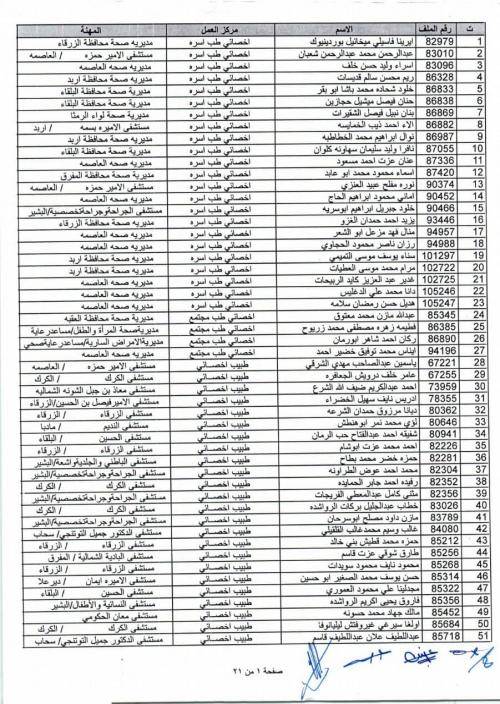 ت رقم الملف الاسم مركز العمل المهنة
1 82979 ايرينا فاسيلي ميخائيل بوردينيوك اخصائي طب اسره مديريه صحة محافظة الزرقاء
2 83010 عبدالرحمن محمد عبدالرحمن شعبان اخصائي طب اسره مستشفى الامير حمزه / العاصمه
3 83096 اسراء وليد حسن خلف اخصائي طب اسره مديريه صحة العاصمه
4 86328 ريم محسن سالم قديسات اخصائي طب اسره مديرية صحة محافظة اربد
5 86833 خلود شحاده محمد باشا ابو بقر اخصائي طب اسره مديرية صحة محافظة البلقاء
6 86838 حنان فيصل ميشيل حجازين اخصائي طب اسره مديرية صحة محافظة البلقاء
7 86869 بنان نبيل فيصل الشقيرات اخصائي طب اسره مديرية صحة لواء الرمثا
8 86882 الاء احمد ذيب الخمايسه اخصائي طب اسره مستشفى الاميره بسمه / اربد
9 86987 نوال ابراهيم محمد الخطاطبه اخصائي طب اسره مديرية صحة محافظة اربد
10 87055 نافرا وليد سليمان سهاونه كلوان اخصائي طب اسره مديرية صحة محافظة البلقاء
11 87336 عنان عزت احمد مسعود اخصائي طب اسره مديريه صحة العاصمه
12 87420 اسماء محمود محمد ابو عابد اخصائي طب اسره مديرية صحة محافظة المفرق
13 90374 نوره مفلح عبيد العنزي اخصائي طب اسره مستشفى الامير حمزه / العاصمه
14 90452 اماني محمود ابراهيم الحاج اخصائي طب اسره مديريه صحة العاصمه
15 90466 خلود جبريل ابراهيم ابوسريه اخصائي طب اسره مستشفى الجراحة/وجراحة/تخصصية/البشير
16 93446 يزيد احمد حمدان الغزو اخصائي طب اسره مديريه صحة محافظة الزرقاء
17 94957 منال فهد مزعل ابو الشعر اخصائي طب اسره مديريه صحة العاصمه
18 94988 رزان ناصر محمود الحجاوي اخصائي طب اسره مديريه صحة العاصمه
19 101297 سناء يوسف موسى التميمي اخصائي طب اسره مديرية صحة محافظة اربد
20 102722 مرام محمد موسى العطيات اخصائي طب اسره مديريه صحة العاصمه
21 102725 غدير عبد العزيز كايد الربيحات اخصائي طب اسره مديرية صحة محافظة اربد
22 105246 دانا محمد علي الدغليس اخصائي طب اسره مديريه صحة العاصمه
23 105247 هديل حسن رمضان سلامه اخصائي طب اسره مديريه صحة العاصمه
24 85345 عبدالله مازن محمد معتوق اخصائي طب مجتمع مديرية صحة محافظة العقبه
25 86385 فطيمه زهره مصطفى محمد زريوح اخصائي طب مجتمع مديرية/صحة المرأة والطفل/مساعدرعاية
26 86890 ركان احمد شاهر ابورمان اخصائي طب مجتمع مديرية/الامراض السارية/مساعدرعايةصحي
27 94196 ايناس محمد توفيق خضير احمد اخصائي طب مجتمع مديريه صحة العاصمه
28 67221 ياسمين عبدالصاحب مهدي الشرقي طبيب اخصائي مستشفى الامير حمزه / العاصمه
29 67255 عامر خلف درويش الجعافره طبيب اخصائي مستشفى الكرك / الكرك
30 73959 احمد عبدالكريم ضيف الله الشرع طبيب اخصائي مستشفى معاذ بن جبل الشونه الشماليه
31 78355 ادريس نايف سهيل الخضراء طبيب اخصائي مستشفى الاميرفيصل بن الحسين/الزرقاء
32 80362 ديانا مرزوق حمدان الشرعه طبيب اخصائي مستشفى الزرقاء / الزرقاء
33 80646 لؤي محمد نمر ابوهنطش طبيب اخصائي مستشفى النديم / مادبا
34 80941 شفيقه احمد عبدالفتاح حب الرمان طبيب اخصائي مستشفى الحسين / البلقاء
35 82226 احمد محمد عزت ابوشام طبيب اخصائي مستشفى الزرقاء / الزرقاء
36 82281 حمزه خضر محمد بطاح طبيب اخصائي مستشفى الباطني والجلدية/اشعة/البشير
37 82304 محمد احمد عوض الطراونه طبيب اخصائي مستشفى الجراحة/وجراحة/تخصصية/البشير
38 82352 رفيده احمد جابر الحمايده طبيب اخصائي مستشفى الكرك / الكرك
39 82356 مثنى كامل عبدالمعطي الفريجات طبيب اخصائي مستشفى الجراحة/وجراحة/تخصصية/البشير
40 83026 خطاب عبدالجليل بركات الرواشده طبيب اخصائي مستشفى الكرك / الكرك
41 83789 مازن داود مصلح ابوسرحان طبيب اخصائي مستشفى الجراحة/وجراحة/تخصصية/البشير
42 84080 غالب وسيم محمدغالب القلقيلي طبيب اخصائي مستشفى الدكتور جميل التوتنجي/ سحاب
43 85212 حمزه محمد قطيش بني خالد طبيب اخصائي مستشفى الزرقاء / الزرقاء
44 85256 طارق شوقي عزت قاسم طبيب اخصائي مستشفى البادية الشمالية / المفرق
45 85268 محمود نايف محمود سويدات طبيب اخصائي مستشفى الزرقاء / الزرقاء
46 85314 حسن يوسف محمد الصغير ابو حسين طبيب اخصائي مستشفى الاميره ايمان / ديرعلا
47 85322 مجدلينا علي محمود العموري طبيب اخصائي مستشفى الحسين / البلقاء
48 85356 فاروق يحيى اكريم الرواشده طبيب اخصائي مستشفى النسائية والأطفال/البشير
49 85452 مالك جهاد محمد حسونه طبيب اخصائي مستشفى معان الحكومي
50 85684 اولغا سيرغي غيروفتش ليليانوفا طبيب اخصائي مستشفى الكرك / الكرك
51 85718 عبداللطيف علان عبداللطيف قاسم طبيب اخصائي مستشفى الدكتور جميل التوتنجي/ سحاب
صفحة ١ من ٢١